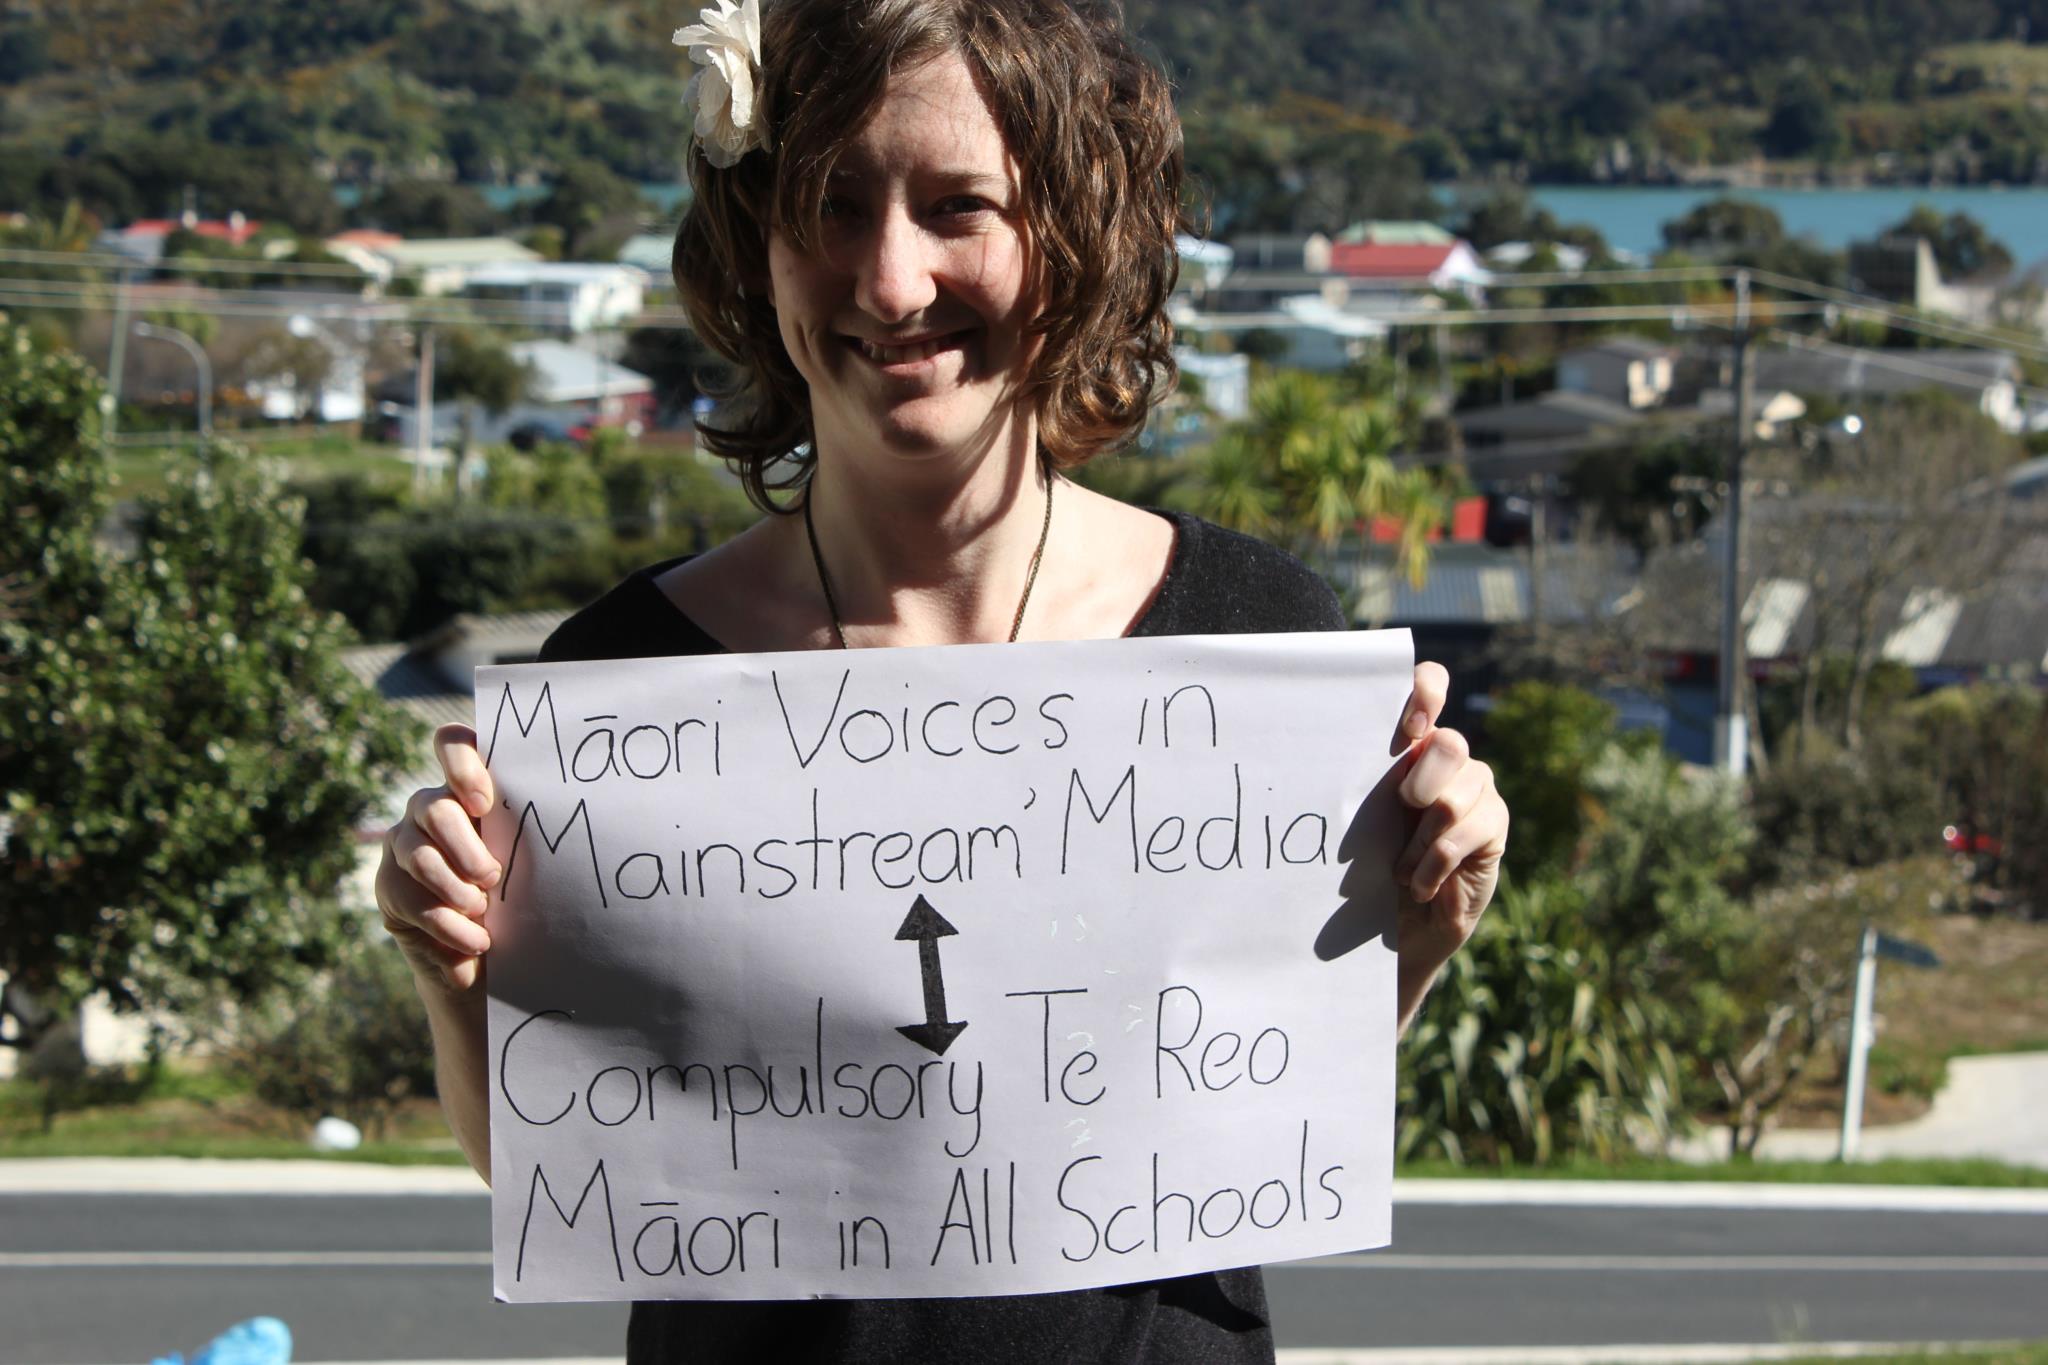 Māori Voices in
'Mainstream' Media
Compulsory Te Reo
Māori in All Schools